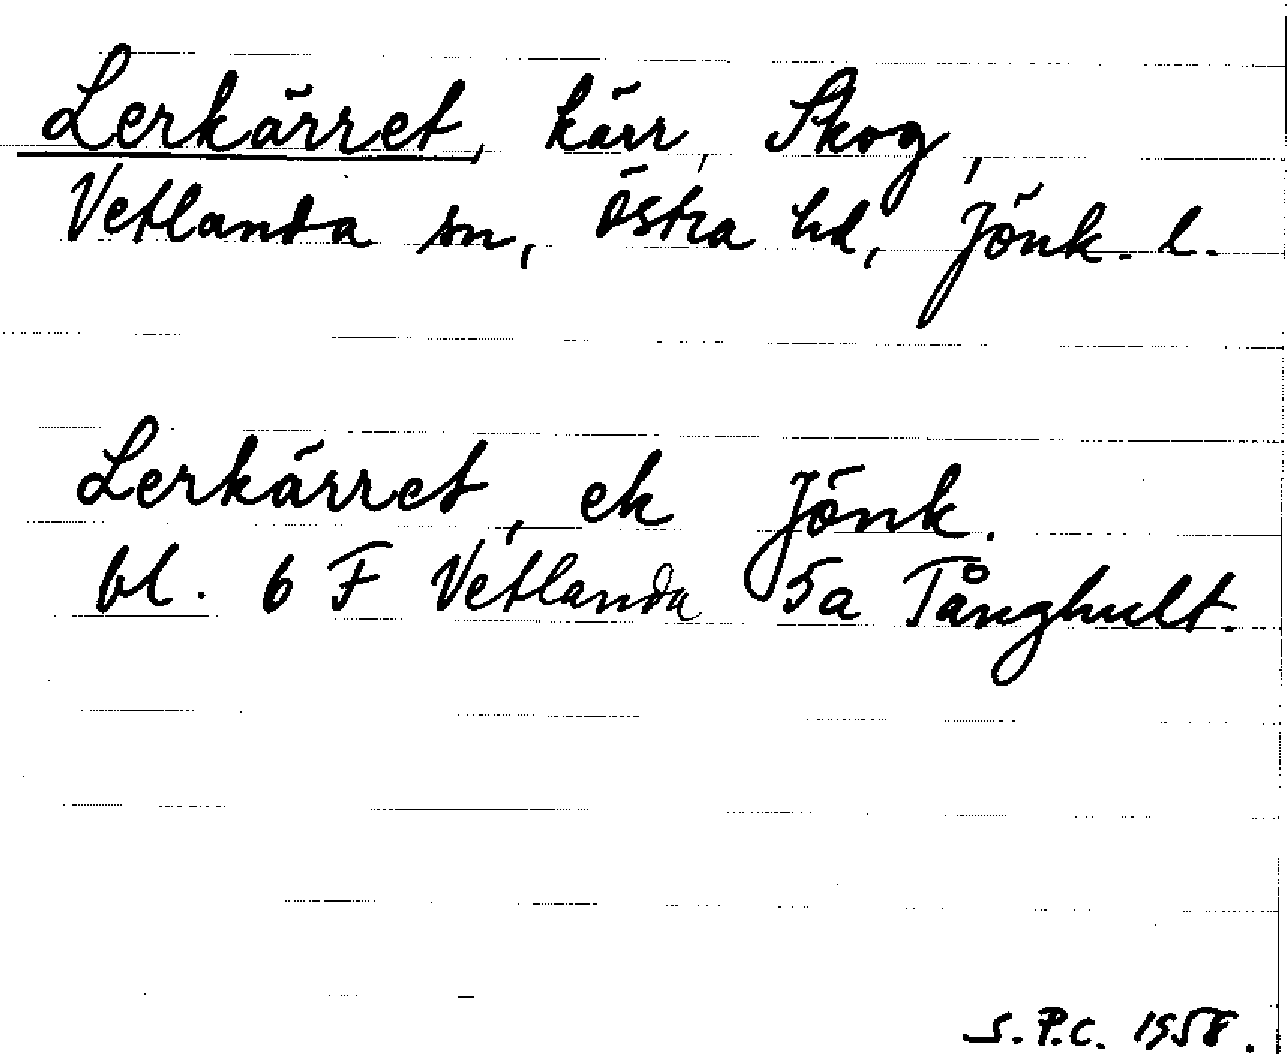 Lerkärret, kärr, Skog,
Vetlanda sn, Östra hd, Jönk. l.
Lerkärret, ek Jönk.
bl. 6 F Vetlanda 5a Tånghult.
S.P.C. 1958.